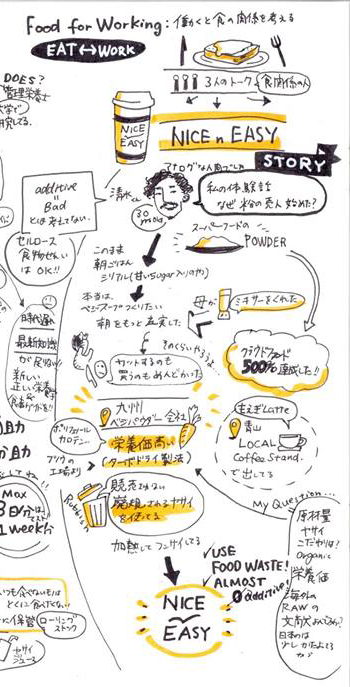 Food for Working: 働くと食の関係を考える
EAT ↔ WORK
3人のトーク
食関係の人
DOES?
管理栄養士
NICE
EASY
NICE n EASY
STORY
additive
=
Bad
とは考えてない。
清水くん
30
私の体験談
なぜ 粉の売人 始めた?
セルロース
食物せんい
はOK!!
スーパーフードの
POWDER
このまま
朝ごはん
シリアル(甘いSugar入りのやつ)
本当は
ベジスープつくりたい
朝をもっと充実した
母が
ミキサーをくれた
カットするのも
買うのもめんどかった
クラウドファンド
500%達成した!!
時代遅れ
最新知識
新しい
正しい栄養
九州の
ベジパウダー会社
栄養価高い
(ターボドライ製法)
ポリフェノール
カロテン
フツウの
工場より
もえぎLatte
青山
LOCAL
Coffee Stand.
で出してる
Rubbish
販売できない
廃棄されるヤサイ
を使ってる
加熱してフンサイしてる
Max
1week分
ローリング
ストック
ヤサイ
ジュース
USE
FOOD WASTE!
ALMOST
0 additive!
NICE
EASY
My Question...
原材量
ヤサイ
こだわりは?
Organic
栄養価
海外の
RAWの
日本のは